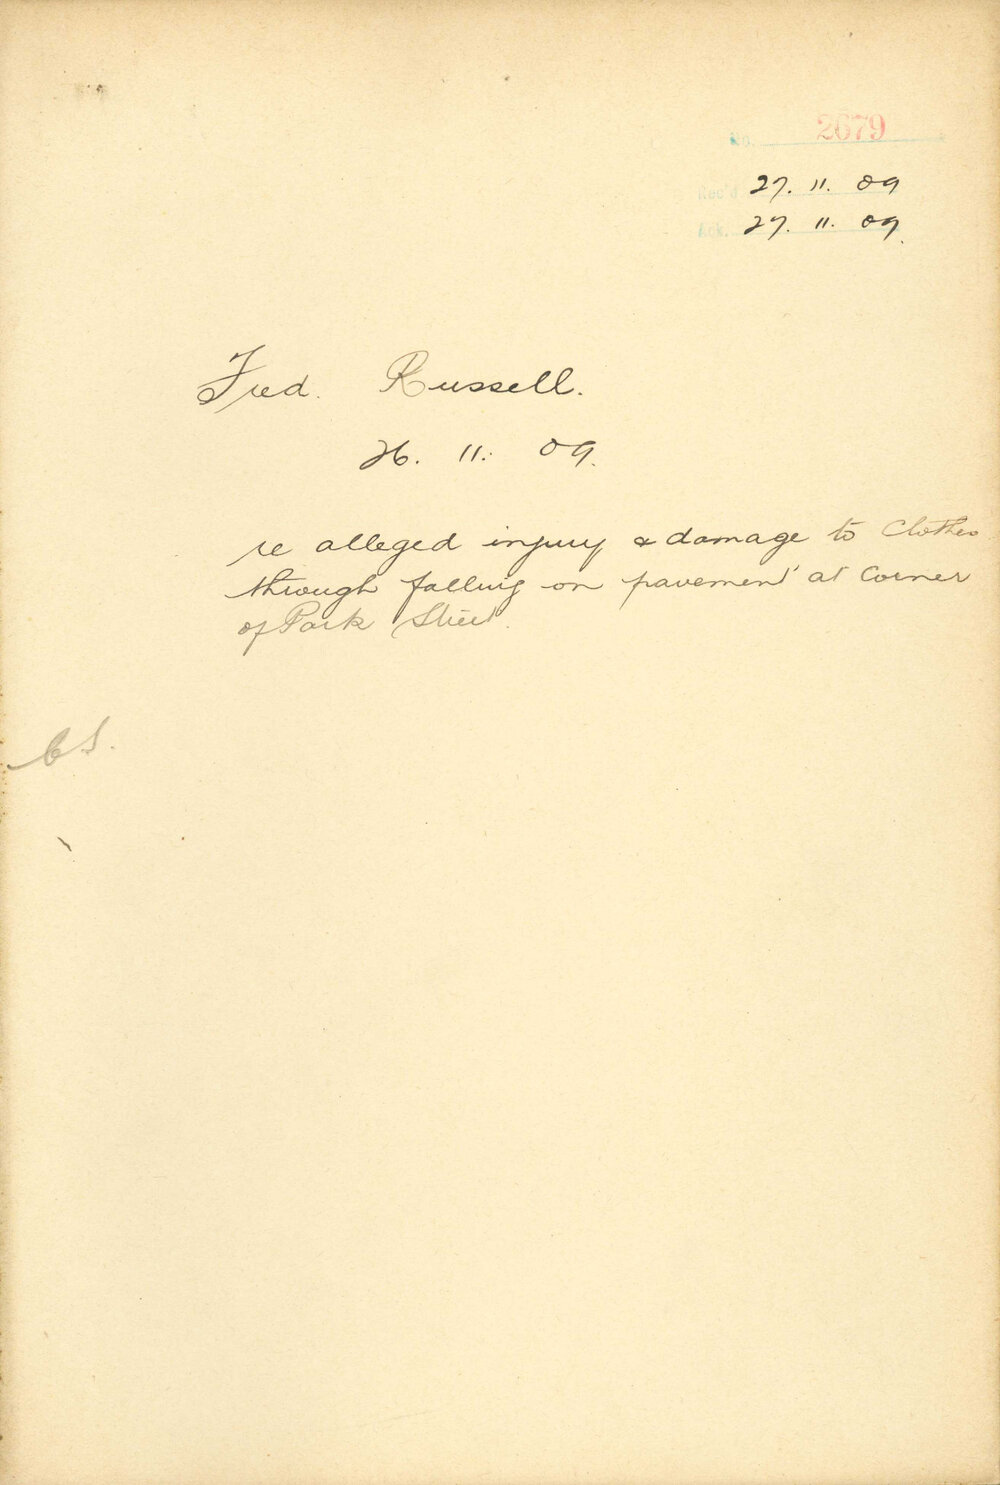 No. 2679
Rec'd 27. 11. 09
Ack. 27. 11. 09.
Fred. Russell.
26. 11. 09.
re alleged injury & damage to Clothes
through falling on pavement at Corner
of Park Street.
CS.